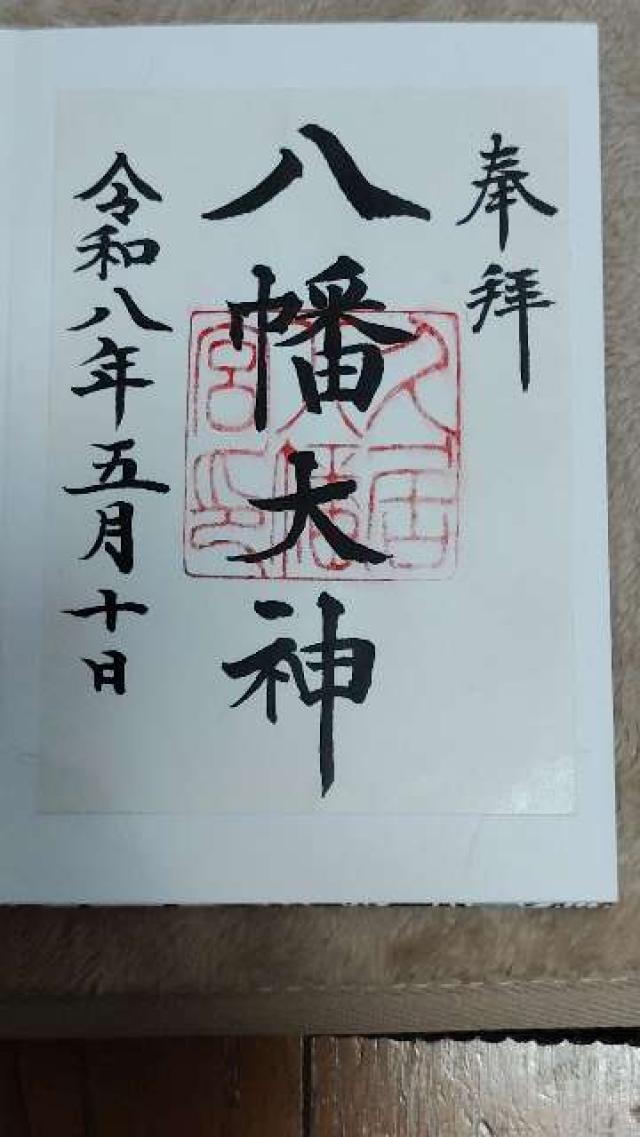 奉拝
八幡大神
令和八年五月十日